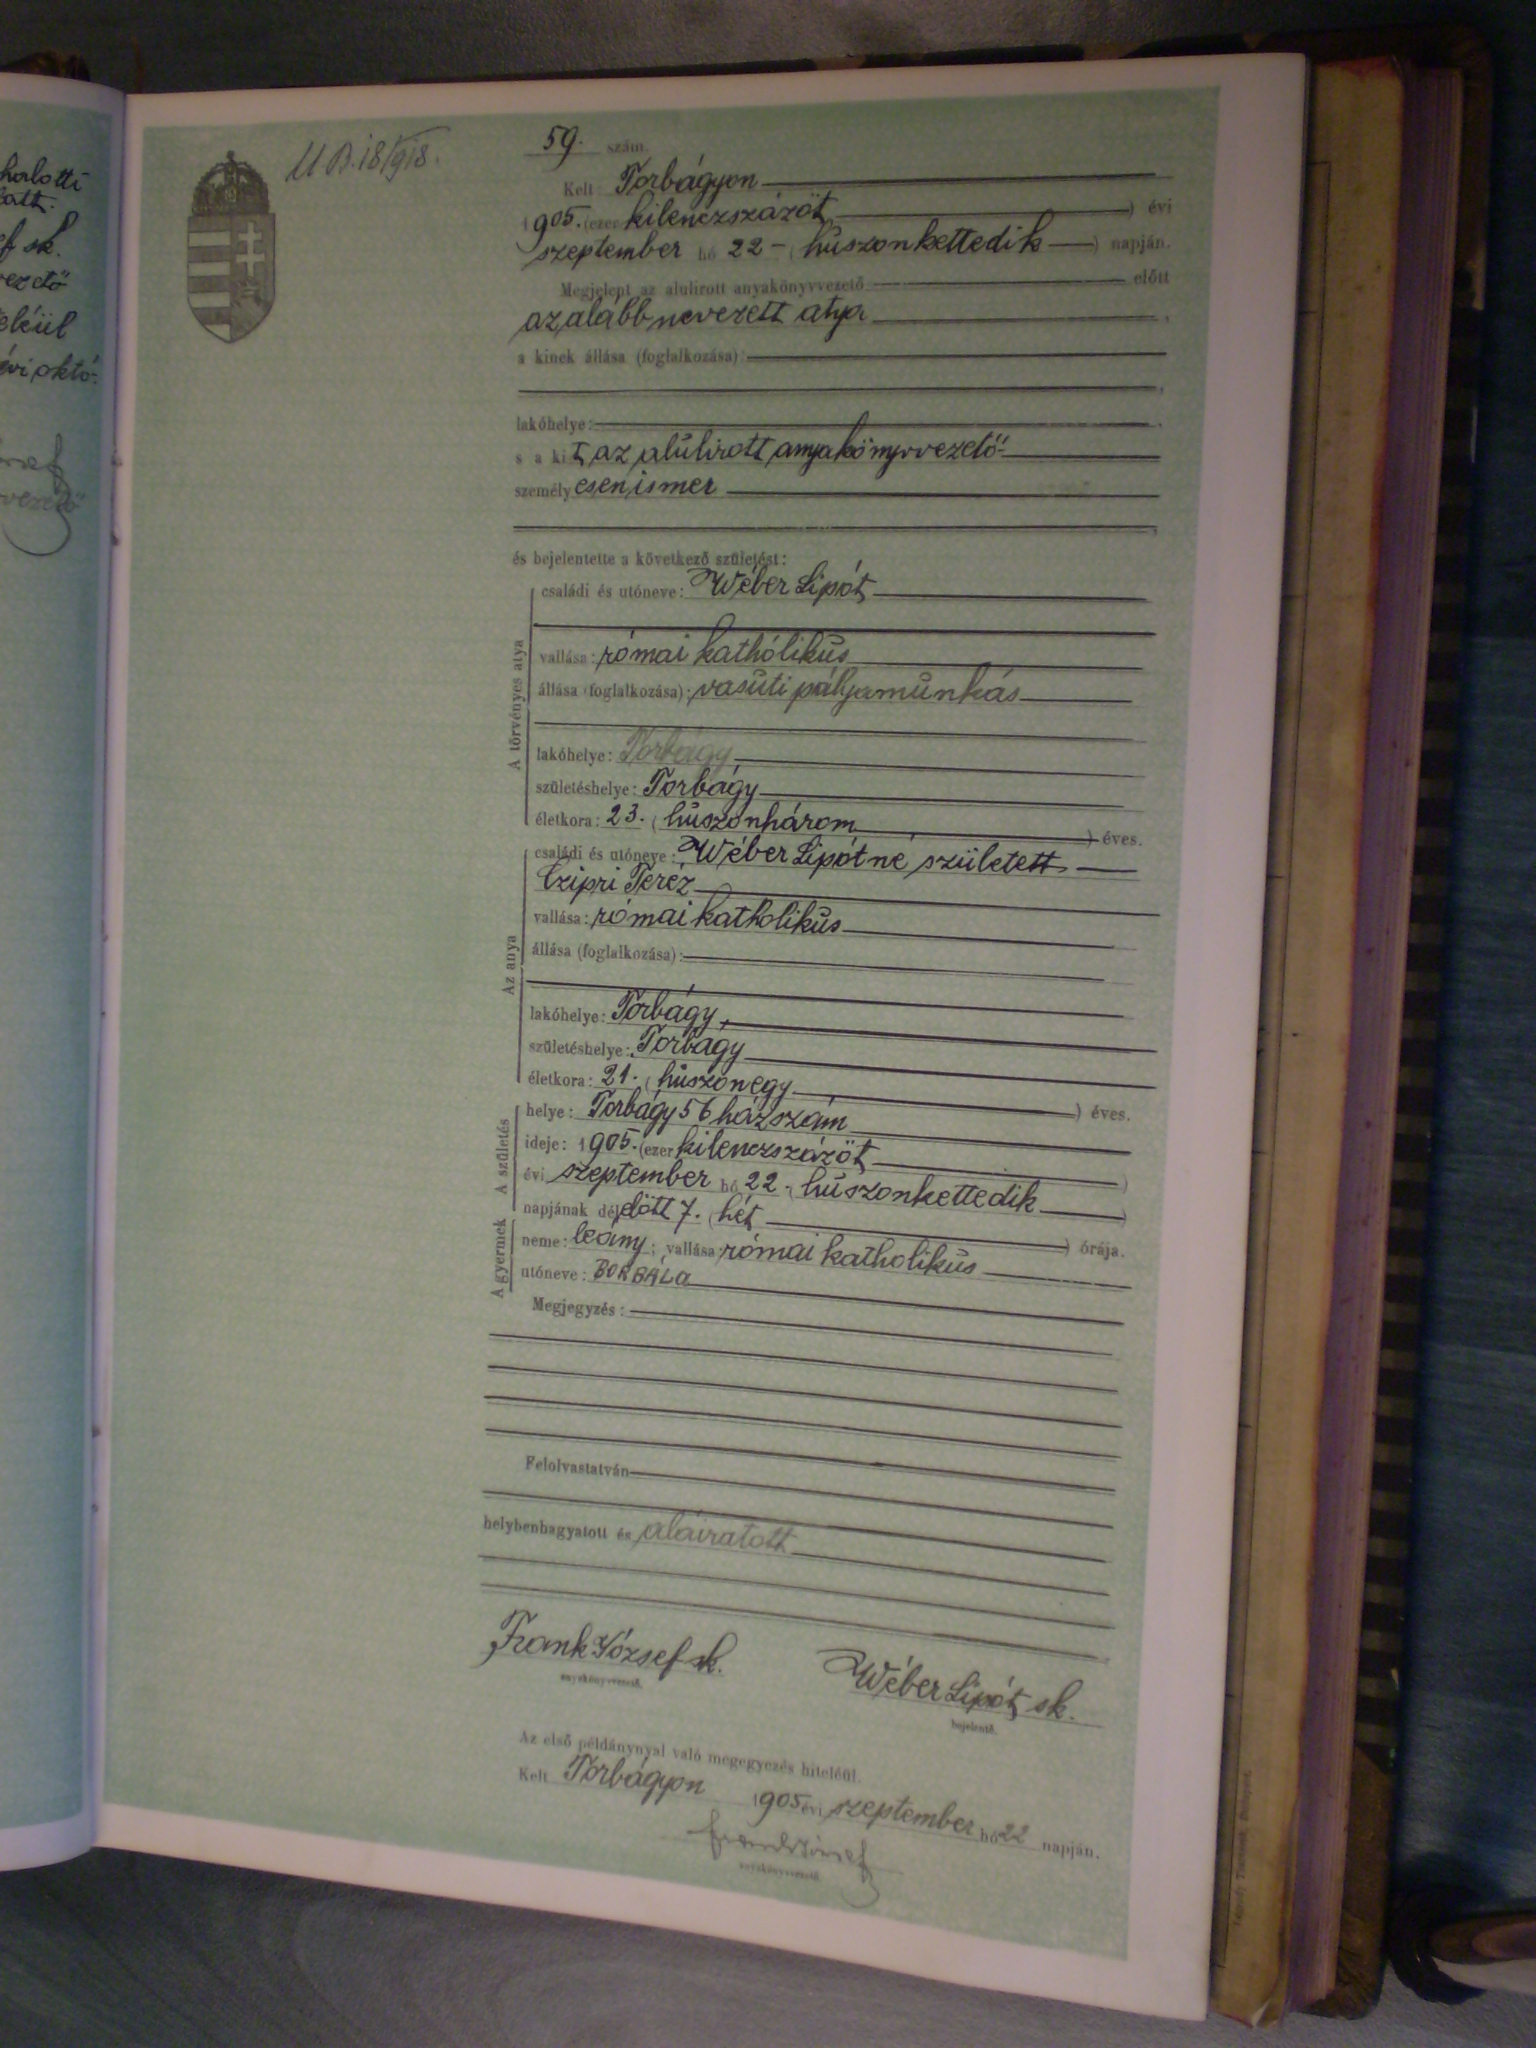 halotti
alatt.
ef sk.
vezető
eléül
évi októ-
vezető
U B. 18/918.
59. szám.
Kelt Torbágyon
1905. (ezer kilenczszázöt) évi
szeptember hó 22- (huszonkettedik) napján.
Megjelent az alulirott anyakönyvvezető előtt
az alább nevezett atya,
a kinek állása (foglalkozása):
lakóhelye:
s a kit az alulirott anyakönyvvezető
személyesen ismer
és bejelentette a következő születést:
A törvényes atya
családi és utóneve: Wéber Lipót
vallása: római kathólikus
állása (foglalkozása): vasuti pályamunkás
lakóhelye: Torbágy
születéshelye: Torbágy
életkora: 23. (huszonhárom) éves.
Az anya
családi és utóneve: Wéber Lipótné született
Czipri Teréz
vallása: római katholikus
állása (foglalkozása):
lakóhelye: Torbágy,
születéshelye: Torbágy
életkora: 21. (huszonegy) éves.
A születés
helye: Torbágy 56 házszám
ideje: 1905. (ezer kilenczszázöt)
évi szeptember hó 22. (huszonkettedik)
napjának délelőtt 7. (hét) órája.
A gyermek
neme: leány; vallása: római katholikus
utóneve: BORBÁLa
Megjegyzés:
Felolvastatván
helybenhagyatott és aláiratott
Frank József sk. Wéber Lipót sk.
anyakönyvvezető. bejelentő.
Az első példánynyal való megegyezés hiteléül.
Kelt Torbágyon 1905 évi szeptember hó 22 napján.
Frank József
anyakönyvvezető